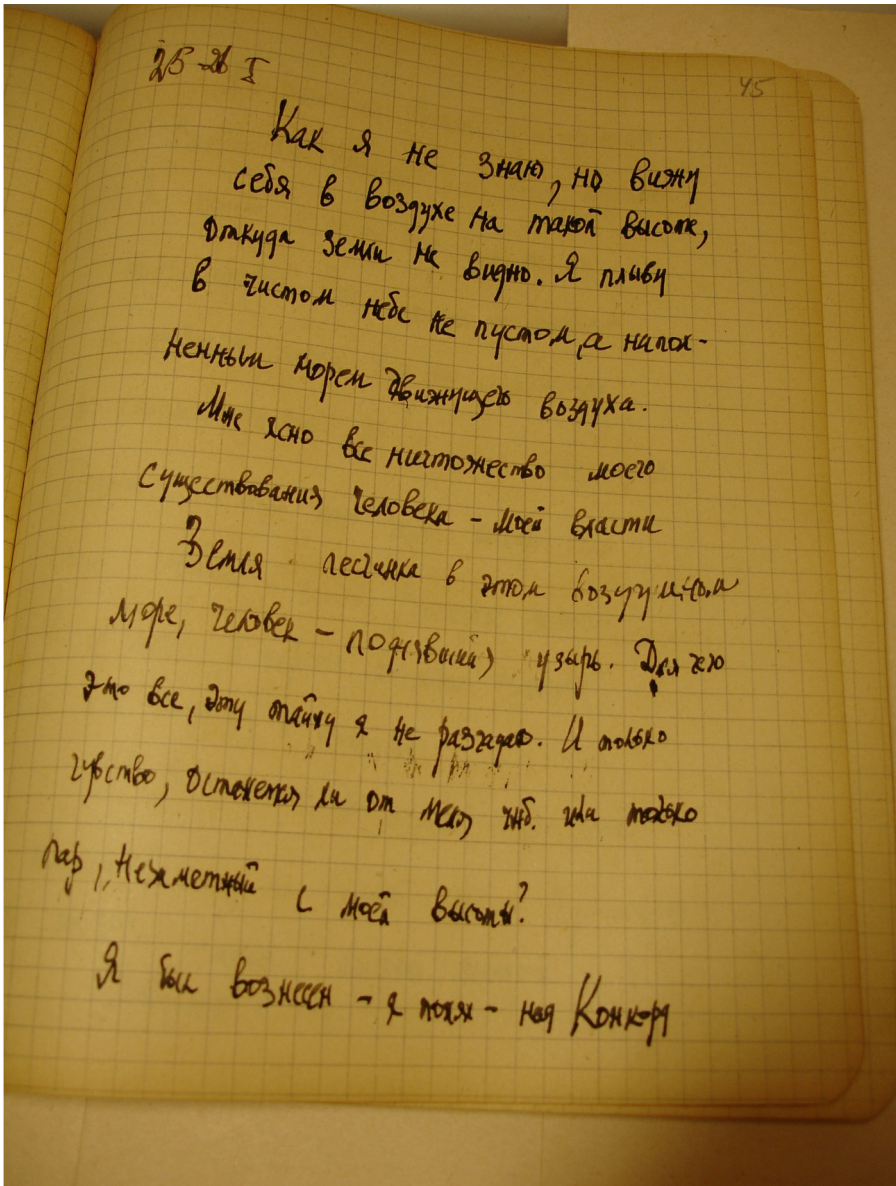 25-26 I
45
Как я не знаю, но вижу
себя в воздухе на такой высоте,
откуда земли не видно. Я плыву
в чистом небе не пустом, а напол-
ненным морем движущего воздуха.
Мне ясно все ничтожество моего
существования человека – моей власти
Земля песчинка в этом воздушном
море, человек – пузырь. Для чего
это все, эту тайну я не разгадаю. И только
чувство, останется ли от меня чнб. или только
пар, незаметный с моей высоты?
Я был вознесен – я понял – над